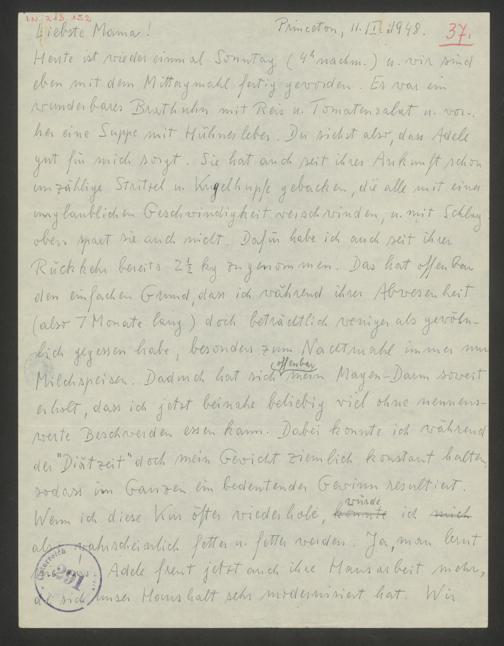 I.N. 213.152
Liebste Mama! Princeton, 11./I. 1948. 37.
Heute ist wieder einmal Sonntag (4h nachm.) u. wir sind
eben mit dem Mittagmahl fertig geworden. Es war ein
wunderbares Brathuhn mit Reis u. Tomatensalat u. vor-
her eine Suppe mit Hühnerleber. Du siehst also, dass Adele
gut für mich sorgt. Sie hat auch seit ihrer Ankunft schon
unzählige Stritzel u. Kugelhupfe gebacken, die alle mit einer
unglaublichen Geschwindigkeit verschwinden, u. mit Schlag-
obers spart sie auch nicht. Dafür habe ich auch seit ihrer
Rückkehr bereits 2½ kg zugenommen. Das hat offenbar
den einfachen Grund, dass ich während ihrer Abwesenheit
(also 7 Monate lang) doch beträchtlich weniger als gewöhn-
lich gegessen habe, besonders zum Nachtmahl immer nur
Milchspeisen. Dadurch hat sich offenbar mein Magen-Darm soweit
erholt, dass ich jetzt beinahe beliebig viel ohne nennens-
werte Beschwerden essen kann. Dabei konnte ich während
der "Diätzeit" doch mein Gewicht ziemlich konstant halten,
sodass im Ganzen ein bedeutender Gewinn resultiert.
Wenn ich diese Kur öfter wiederhole, könnte würde ich mich
also wahrscheinlich fetter u. fetter werden. Ja, man lernt
Adele freut jetzt auch ihre Hausarbeit mehr,
da sich unser Haushalt sehr modernisiert hat. Wir
Österreich
291